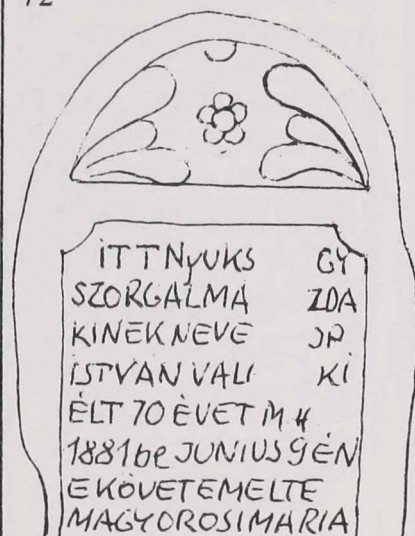 72
ITT NyUKS GY
SZORGALMA ZDA
KINEK NEVE JP
ISTVÁN VALI KI
ÉLT 70 ÉVET M H
1881 be JUNIUS 9 ÉN
E KÖVET EMELTE
MAGYOROSI MARIA